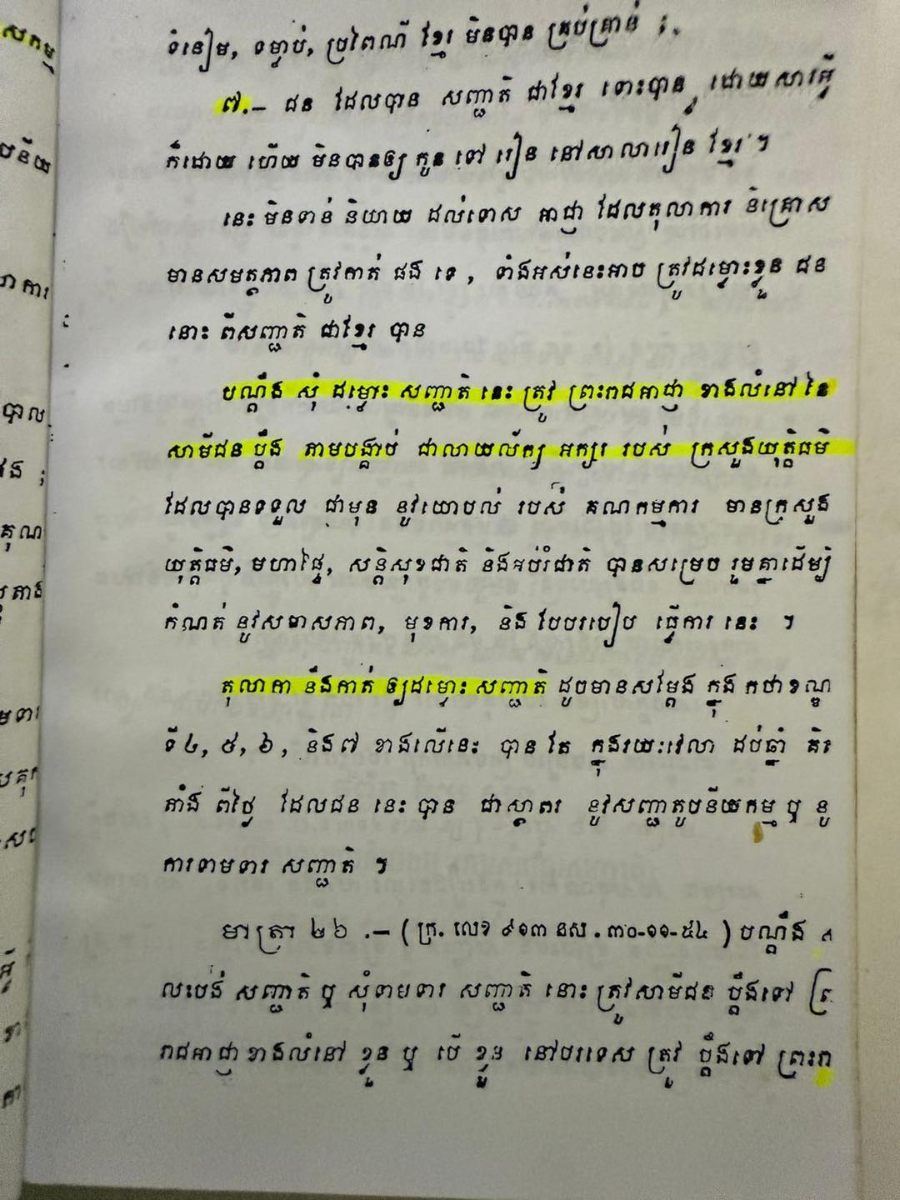 ទំនៀម, ទម្លាប់, ប្រពៃណី ខ្មែរ មិនបាន គ្រប់គ្រាន់ ;
៧.– ជន ដែលបាន សញ្ជាតិ ជាខ្មែរ ទោះបាន ដោយសារអ្វី
ក៏ដោយ ហើយ មិនបានឲ្យ កូន ទៅ រៀន នៅសាលារៀន ខ្មែរ ។
នេះ មិនទាន់ និយាយ ដល់ទោស អាជ្ញា ដែលតុលាការ និគ្រោស
មានសមត្ថភាព ត្រូវកាត់ ផង ទេ , ទាំងអស់នេះអាច ត្រូវដម្មោះខ្លួន ជន
នោះ ពីសញ្ជាតិ ជាខ្មែរ បាន
បណ្តឹង សុំ ដម្មោះ សញ្ជាតិ នេះ ត្រូវ ព្រះរាជអាជ្ញា ខាងលំនៅ នៃ
សាមីជន ប្តឹង តាមបង្គាប់ ជាលាយល័ក្ខ អក្សរ របស់ ក្រសួងយុត្តិធម៌
ដែលបានទទួល ជាមុន នូវយោបល់ របស់ គណកម្មការ មានក្រសួង
យុត្តិធម៌, មហាផ្ទៃ, សន្តិសុខជាតិ និងអប់រំជាតិ បានសម្រេច រួមគ្នាដើម្បី
កំណត់ នូវសមាសភាព, មុខការ, និង បែបរបៀប ធ្វើការ នេះ ។
តុលាកា នឹងកាត់ ឲ្យដម្មោះ សញ្ជាតិ ដូចមានសម្តែង ក្នុង កថាខណ្ឌ
ទី៤, ៥, ៦, និង៧ ខាងលើនេះ បាន តែ ក្នុងរយៈវេលា ដប់ឆ្នាំ គិត
តាំង ពីថ្ងៃ ដែលជន នេះ បាន ជាស្ថាពរ នូវសញ្ជាតូបនីយកម្ម ឬ នូ
ការទាមទារ សញ្ជាតិ ។
មាត្រា ២៦ .– ( ក្រ. លេខ ៩១៣ នស . ៣០-១១-៥៤ ) បណ្តឹង
លះបង់ សញ្ជាតិ ឬ សុំទាមទារ សញ្ជាតិ នោះ ត្រូវសាមីជន ប្តឹងទៅ
រាជអាជ្ញាខាងលំនៅ ខ្លួន ឬ បើ ខ្លួន នៅបរទេស ត្រូវ ប្តឹងទៅ ព្រះរា